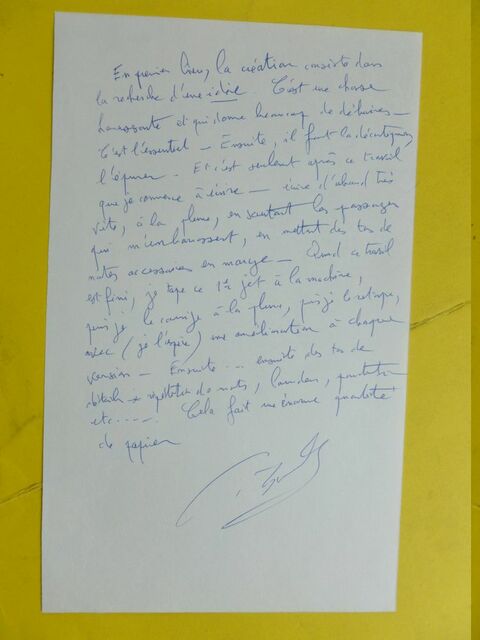 En premier lieu, la création consiste dans
la recherche d'une idée. C'est une chose
harassante et qui donne beaucoup de déboires –
C'est l'essentiel – Ensuite, il faut la décortiquer,
l'épurer. Et c'est seulement après ce travail
que je commence à écrire – écrire d'abord très
vite, à la plume, en sautant les passages
qui m'embarrassent, en mettant des tas de
notes accessoires en marge – Quand ce travail
est fini, je tape ce 1er jet à la machine,
puis je le corrige à la plume, puis je le retape,
avec (je l'espère) une amélioration à chaque
version – Ensuite... ensuite des tas de
détails – répétition de mots, lourdeur, ponctuation
etc.... Cela fait une énorme quantité
de papier